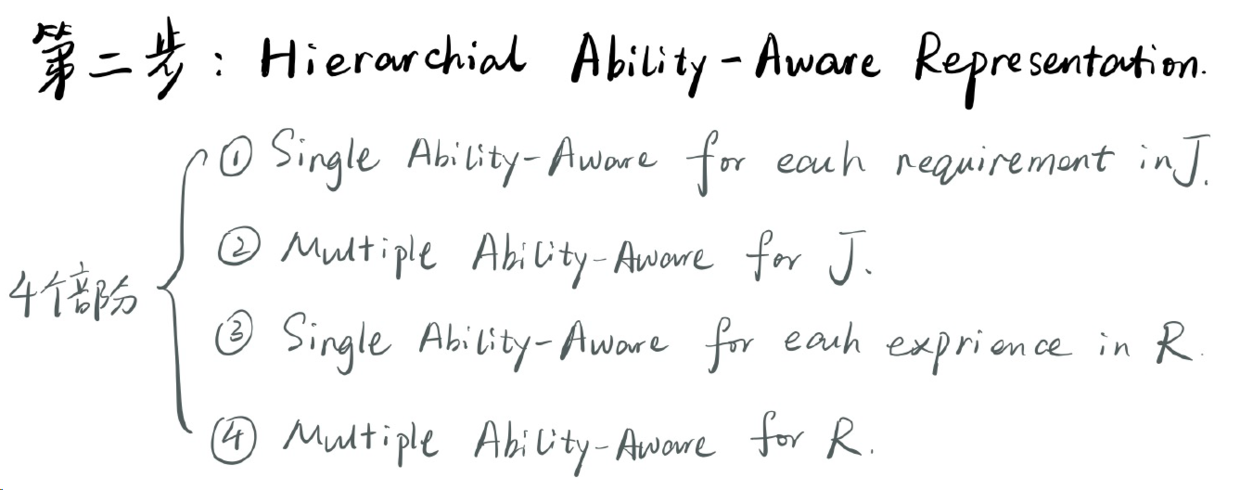 第二步：Hierarchial Ability-Aware Representation.
① Single Ability-Aware for each requirement in J.
② Multiple Ability-Aware for J.
4个部分
③ Single Ability-Aware for each exprience in R.
④ Multiple Ability-Aware for R.